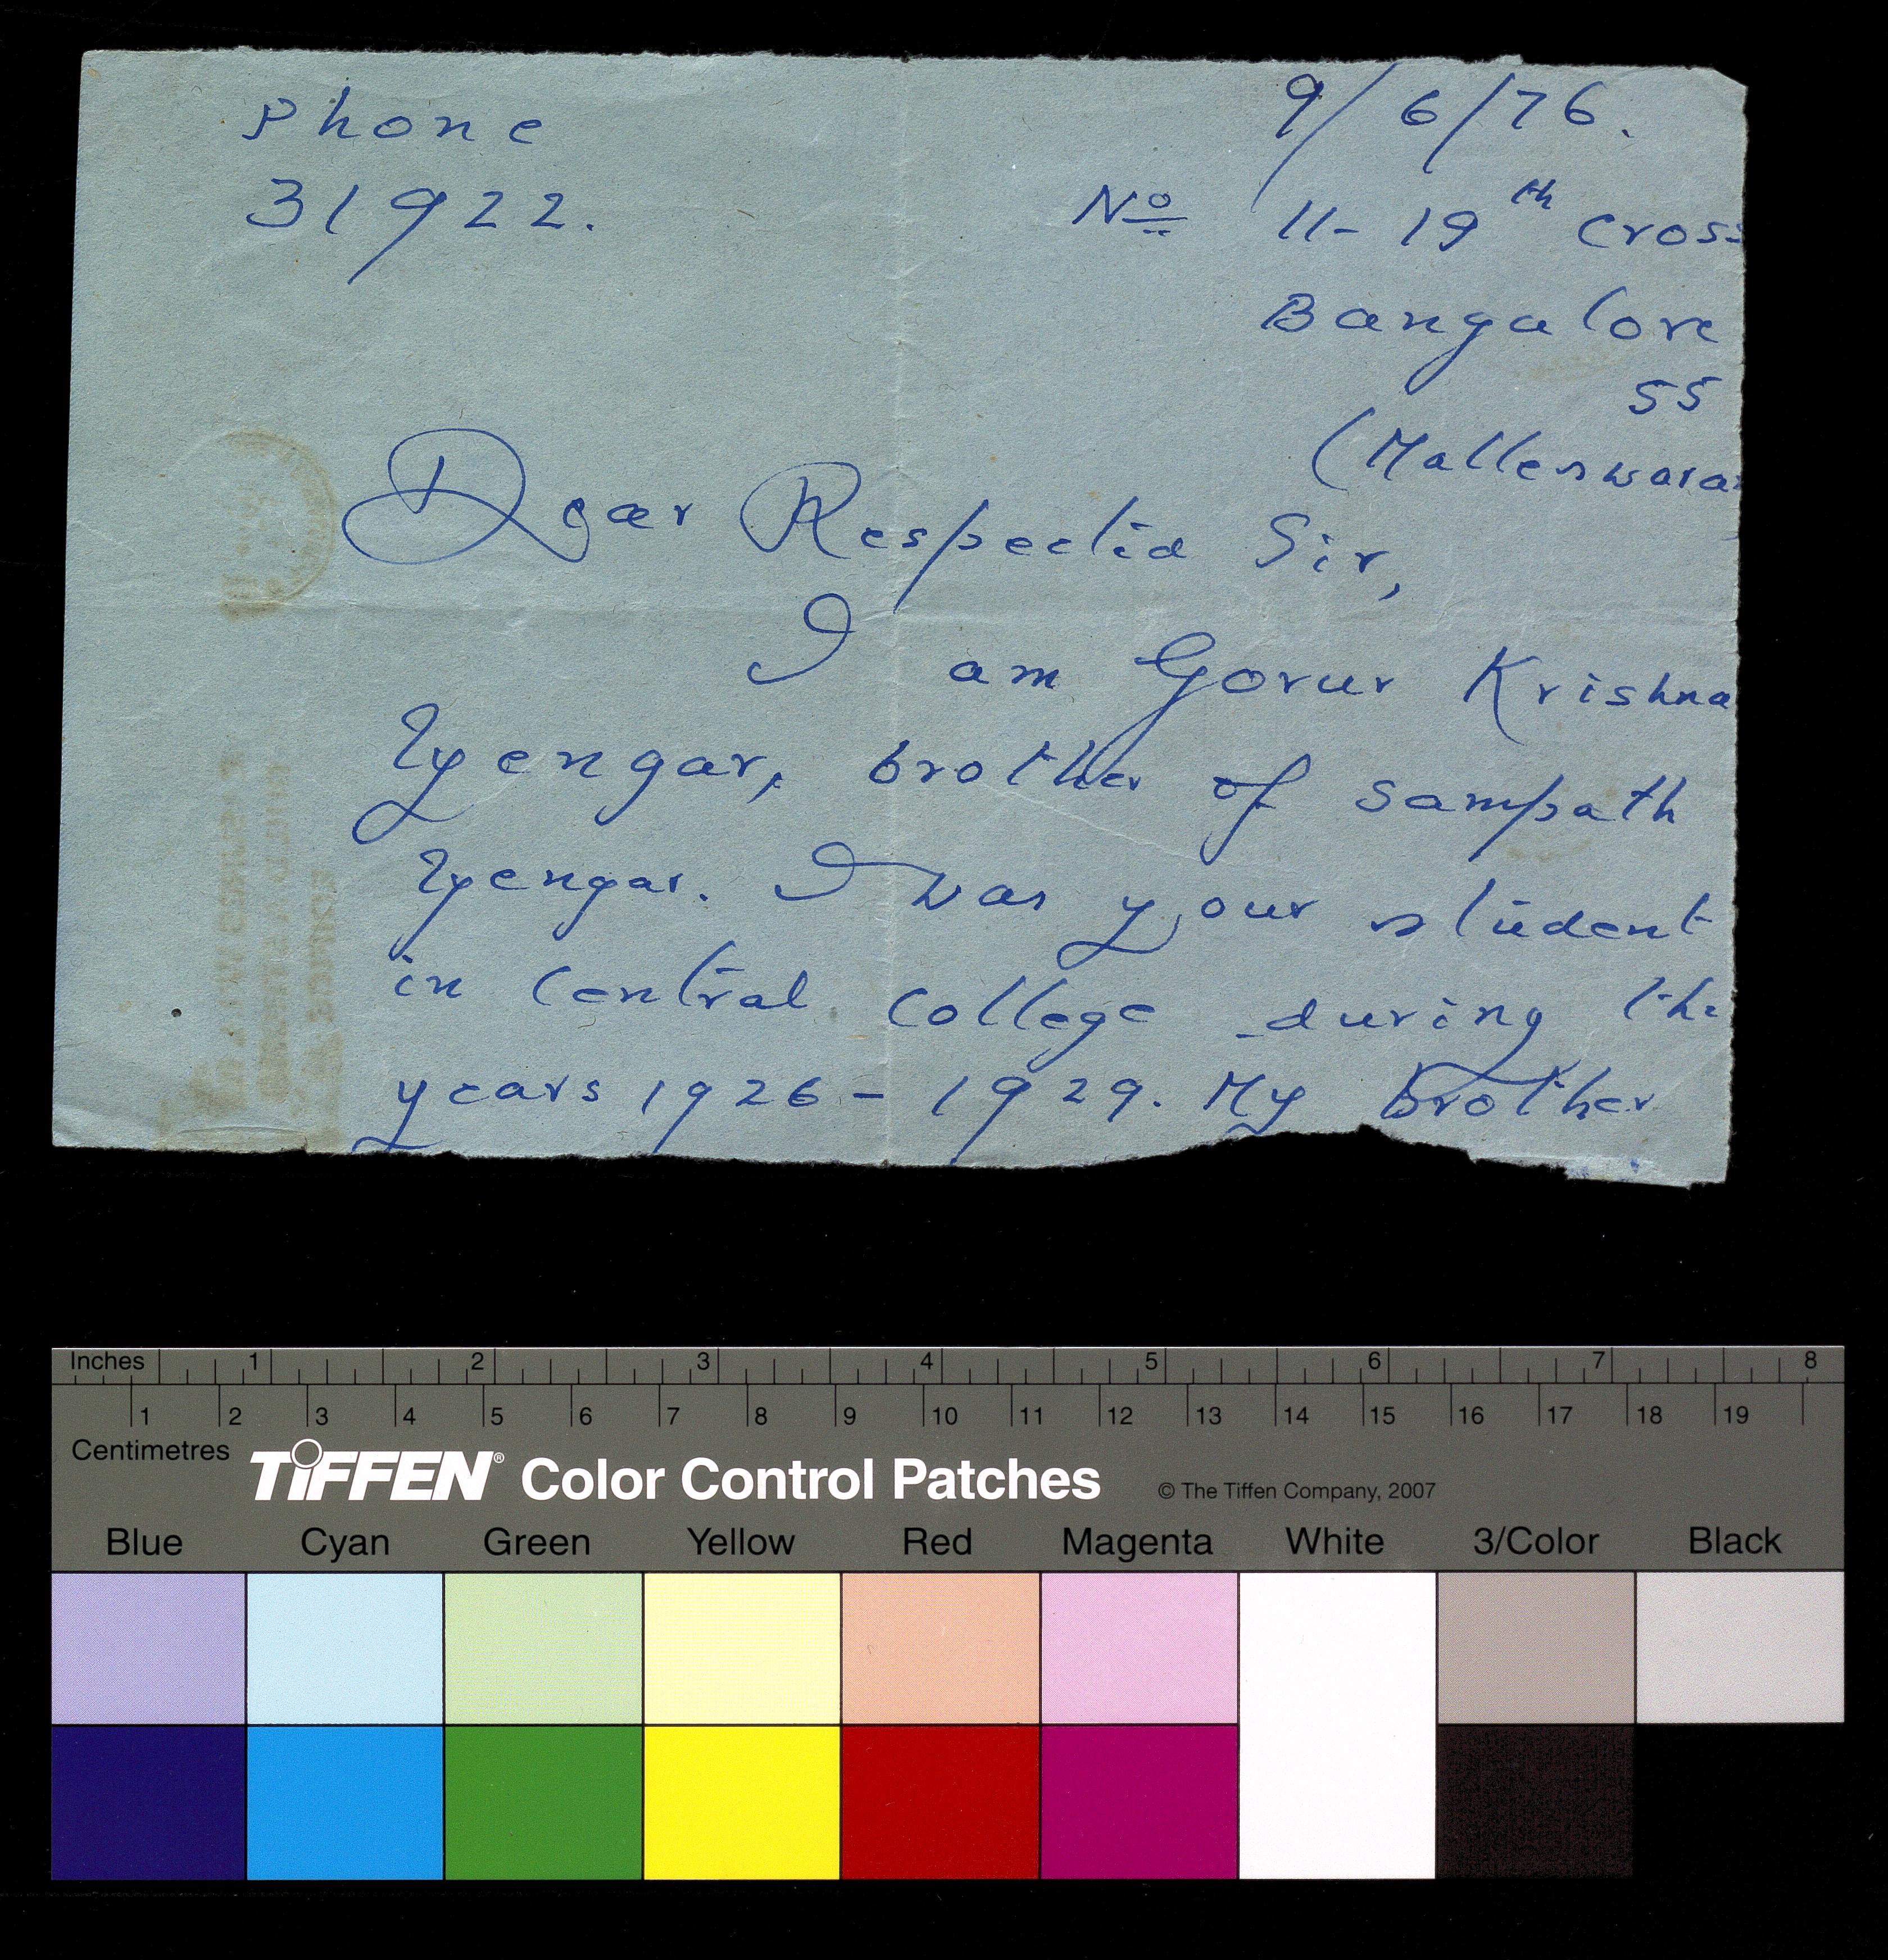 Phone
31922.
9/6/76.
No 11-19th Cross
Bangalore
55
(Malleswara
Dear Respected Sir,
I am Gorur Krishna
Iyengar, brother of Sampath
Iyengar. I was your student
in Central College during the
years 1926-1929. My brother
Inches 1 2 3 4 5 6 7 8
1 2 3 4 5 6 7 8 9 10 11 12 13 14 15 16 17 18 19
Centimetres
TIFFEN® Color Control Patches © The Tiffen Company, 2007
Blue Cyan Green Yellow Red Magenta White 3/Color Black